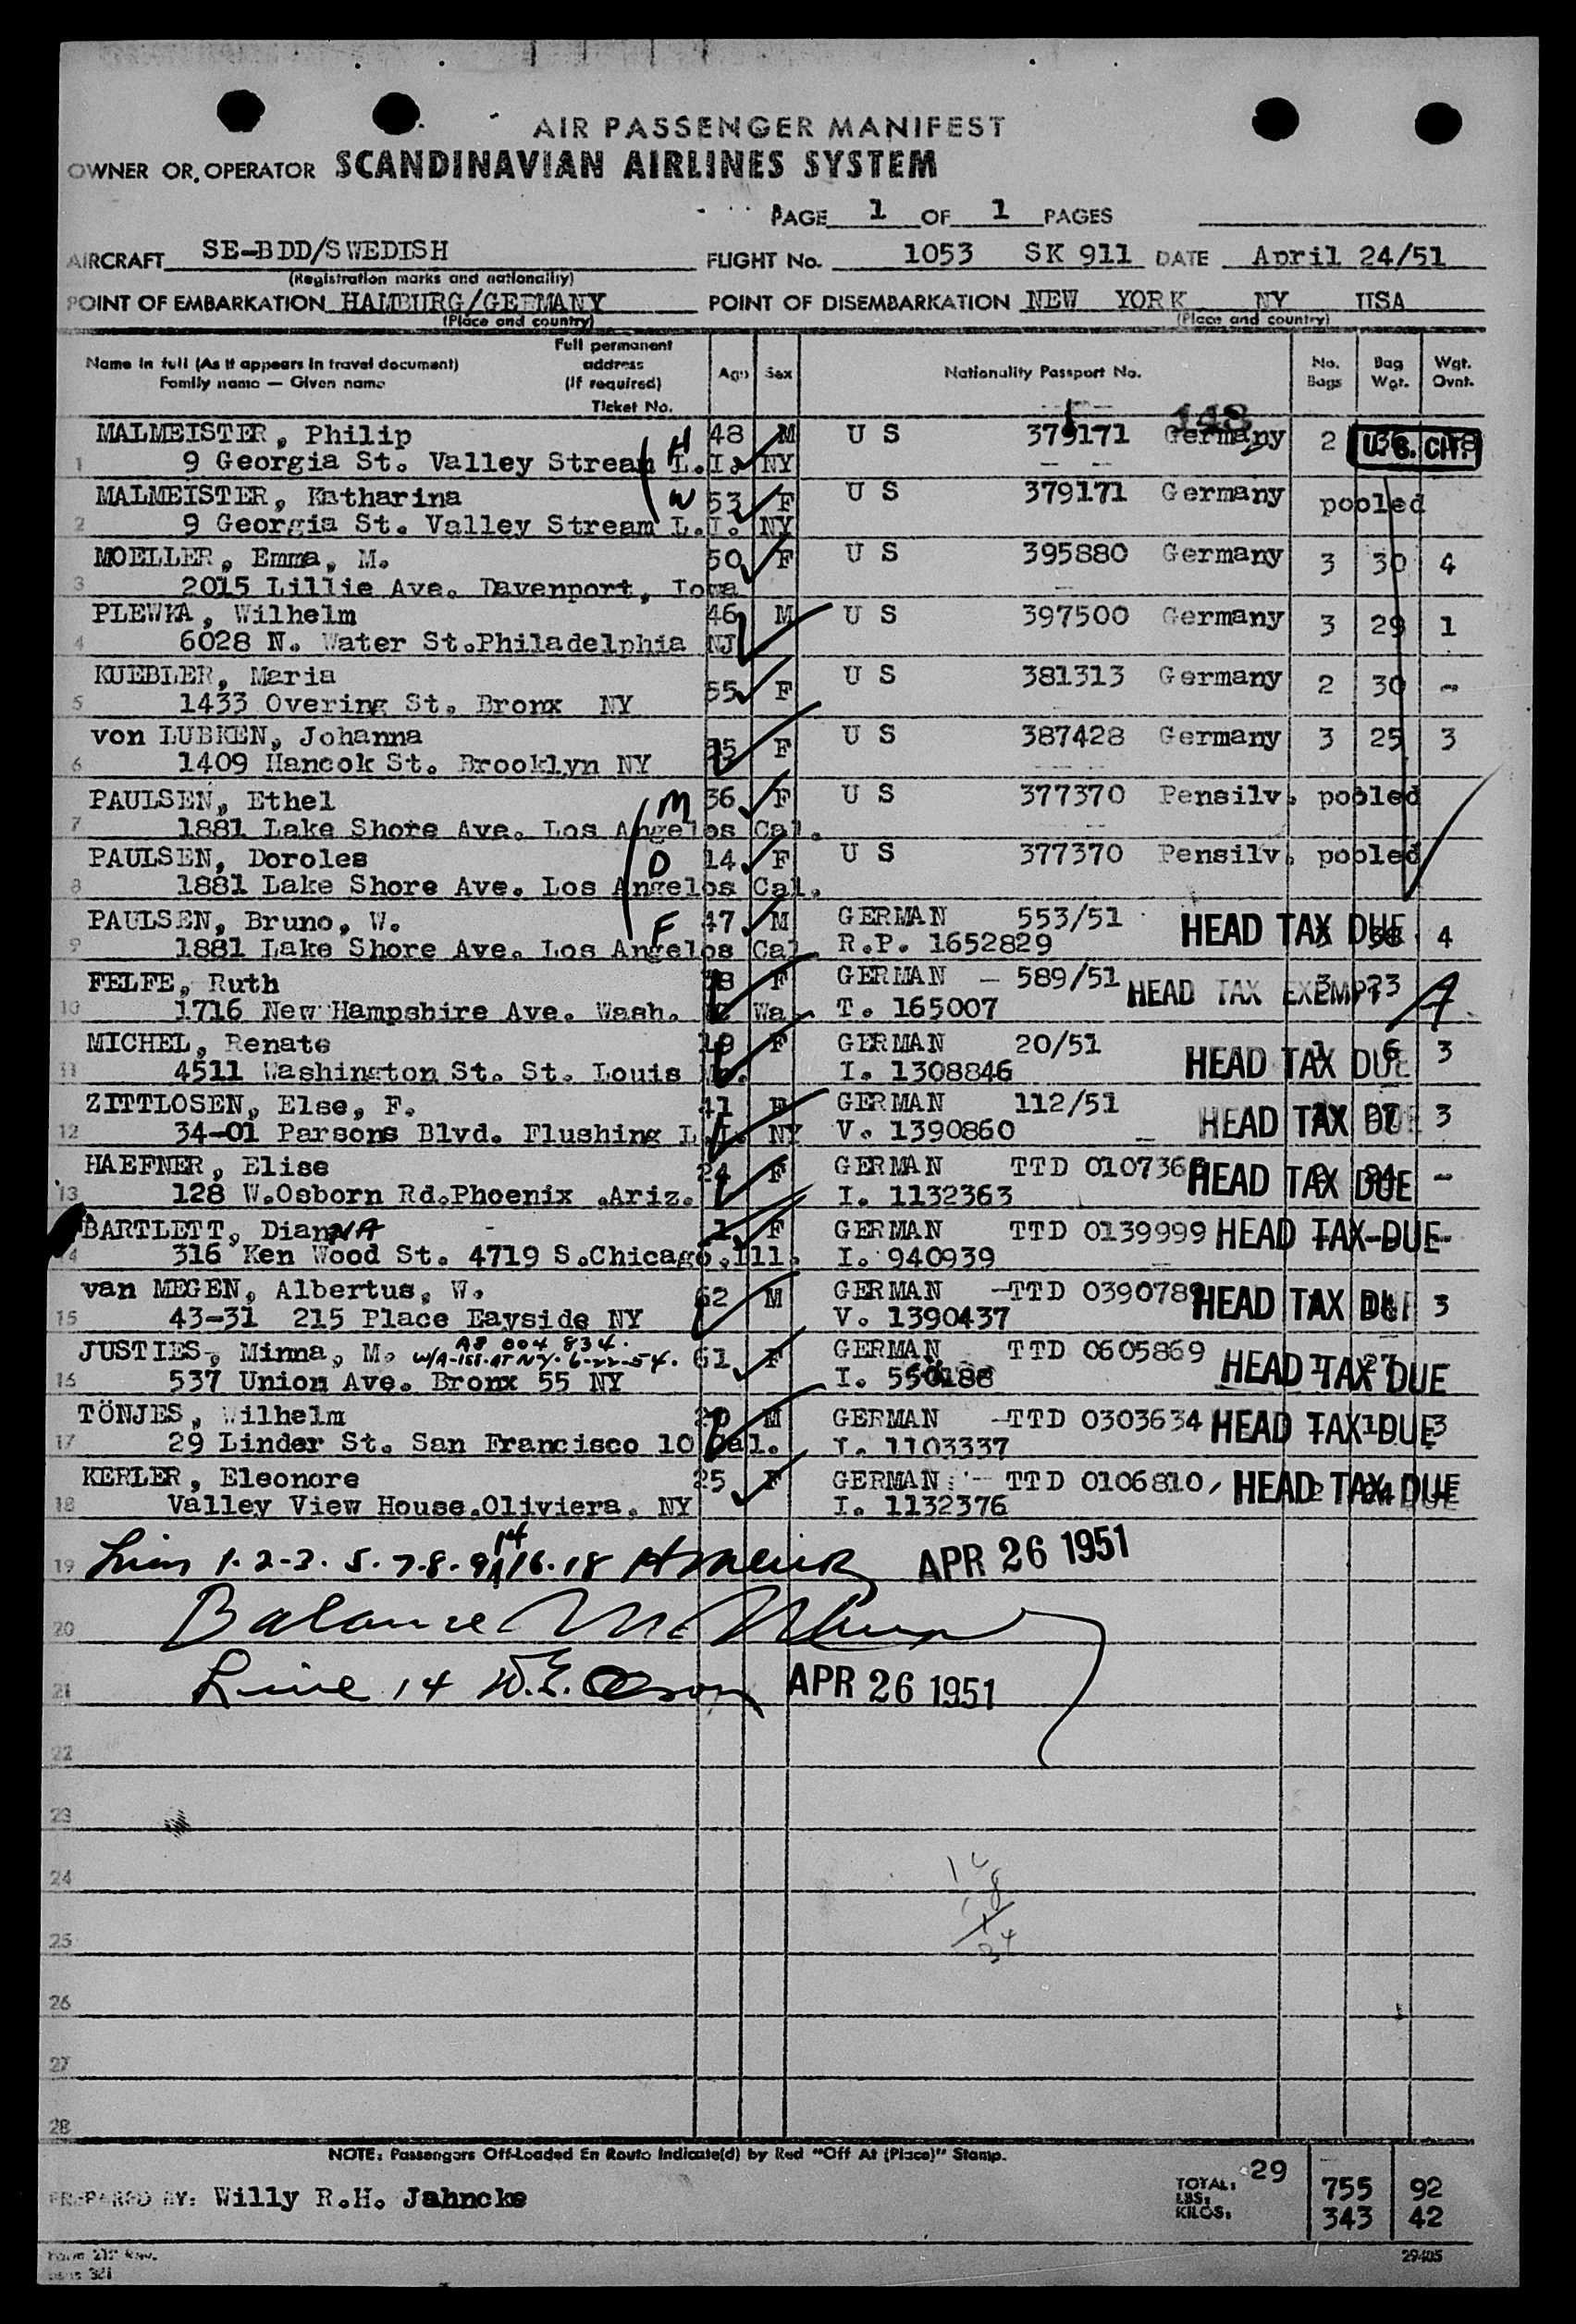 AIR PASSENGER MANIFEST
OWNER OR OPERATOR SCANDINAVIAN AIRLINES SYSTEM
PAGE 1 OF 1 PAGES
AIRCRAFT SE-BDD/SWEDISH FLIGHT No. 1053 SK 911 DATE April 24/51
(Registration marks and nationality)
POINT OF EMBARKATION HAMBURG/GERMANY POINT OF DISEMBARKATION NEW YORK NY USA
(Place and country) (Place and country)
Name in full (As it appears in travel document) Family name — Given name Full permanent address (If required) Ticket No. Age Sex Nationality Passport No. No. Bags Bag Wgt. Wgt. Ovnt.
148
MALMEISTER, Philip H 48 M U S 379171 Germany 2 U.S. CIT.
1 9 Georgia St. Valley Stream L.I. NY
MALMEISTER, Katharina W 53 F U S 379171 Germany pooled
2 9 Georgia St. Valley Stream L.I. NY
MOELLER, Emma, M. 50 F U S 395880 Germany 3 30 4
3 2015 Lillie Ave. Davenport, Iowa
PLEWKA, Wilhelm 46 M U S 397500 Germany 3 29 1
4 6028 N. Water St.Philadelphia NJ
KUEBLER, Maria 55 F U S 381313 Germany 2 30 -
5 1433 Overing St. Bronx NY
von LUBKEN, Johanna F U S 387428 Germany 3 25 3
6 1409 Hancok St. Brooklyn NY
PAULSEN, Ethel M 36 F U S 377370 Pensilv. pooled
7 1881 Lake Shore Ave. Los Angelos Cal.
PAULSEN, Doroles D 14 F U S 377370 Pensilv. pooled
8 1881 Lake Shore Ave. Los Angelos Cal.
PAULSEN, Bruno, W. F 47 M GERMAN 553/51 HEAD TAX DUE 4
9 1881 Lake Shore Ave. Los Angelos Cal. R.P. 1652829
FELFE, Ruth 38 F GERMAN - 589/51 HEAD TAX EXEMPT
10 1716 New Hampshire Ave. Wash. Wa T. 165007
MICHEL, Renate 19 F GERMAN 20/51 HEAD TAX DUE 3
11 4511 Washington St. St. Louis I. 1308846
ZITTLOSEN, Else, F. 41 F GERMAN 112/51 HEAD TAX DUE 3
12 34-01 Parsons Blvd. Flushing L.I. NY V. 1390860
HAEFNER, Elise 24 F GERMAN TTD 010736 HEAD TAX DUE -
13 128 W.Osborn Rd.Phoenix .Ariz. I. 1132363
BARTLETT, DianNA 1 F GERMAN TTD 0139999 HEAD TAX DUE
14 316 Ken Wood St. 4719 S.Chicago.Ill. I. 940939
van MEGEN, Albertus, W. 62 M GERMAN -TTD 0390789 HEAD TAX DUE 3
15 43-31 215 Place Bayside NY V. 1390437
JUSTIES, Minna, M. A8 004 834. W/A-155-AT N.Y. 6-22-54. 61 F GERMAN TTD 0605869 HEAD TAX DUE
16 537 Union Ave. Bronx 55 NY I. 550188
TÖNJES, Wilhelm 20 M GERMAN -TTD 0303634 HEAD TAX DUE 3
17 29 Linder St. San Francisco 10 Cal. I. 1103337
KERLER, Eleonore 25 F GERMAN TTD 0106810 HEAD TAX DUE
18 Valley View House.Oliviera. NY I. 1132376
19 1-2-3. 5. 7-8-9 14 16-18 APR 26 1951
20 Balance
21 Line 14 W.E. Olson APR 26 1951
22
23
24
25
26
27
28
NOTE: Passengers Off-Loaded En Route Indicate(d) by Red "Off At (Place)" Stamp.
PREPARED BY: Willy R.H. Jahncke TOTAL: 29
LBS: 755 92
KILOS: 343 42
29405